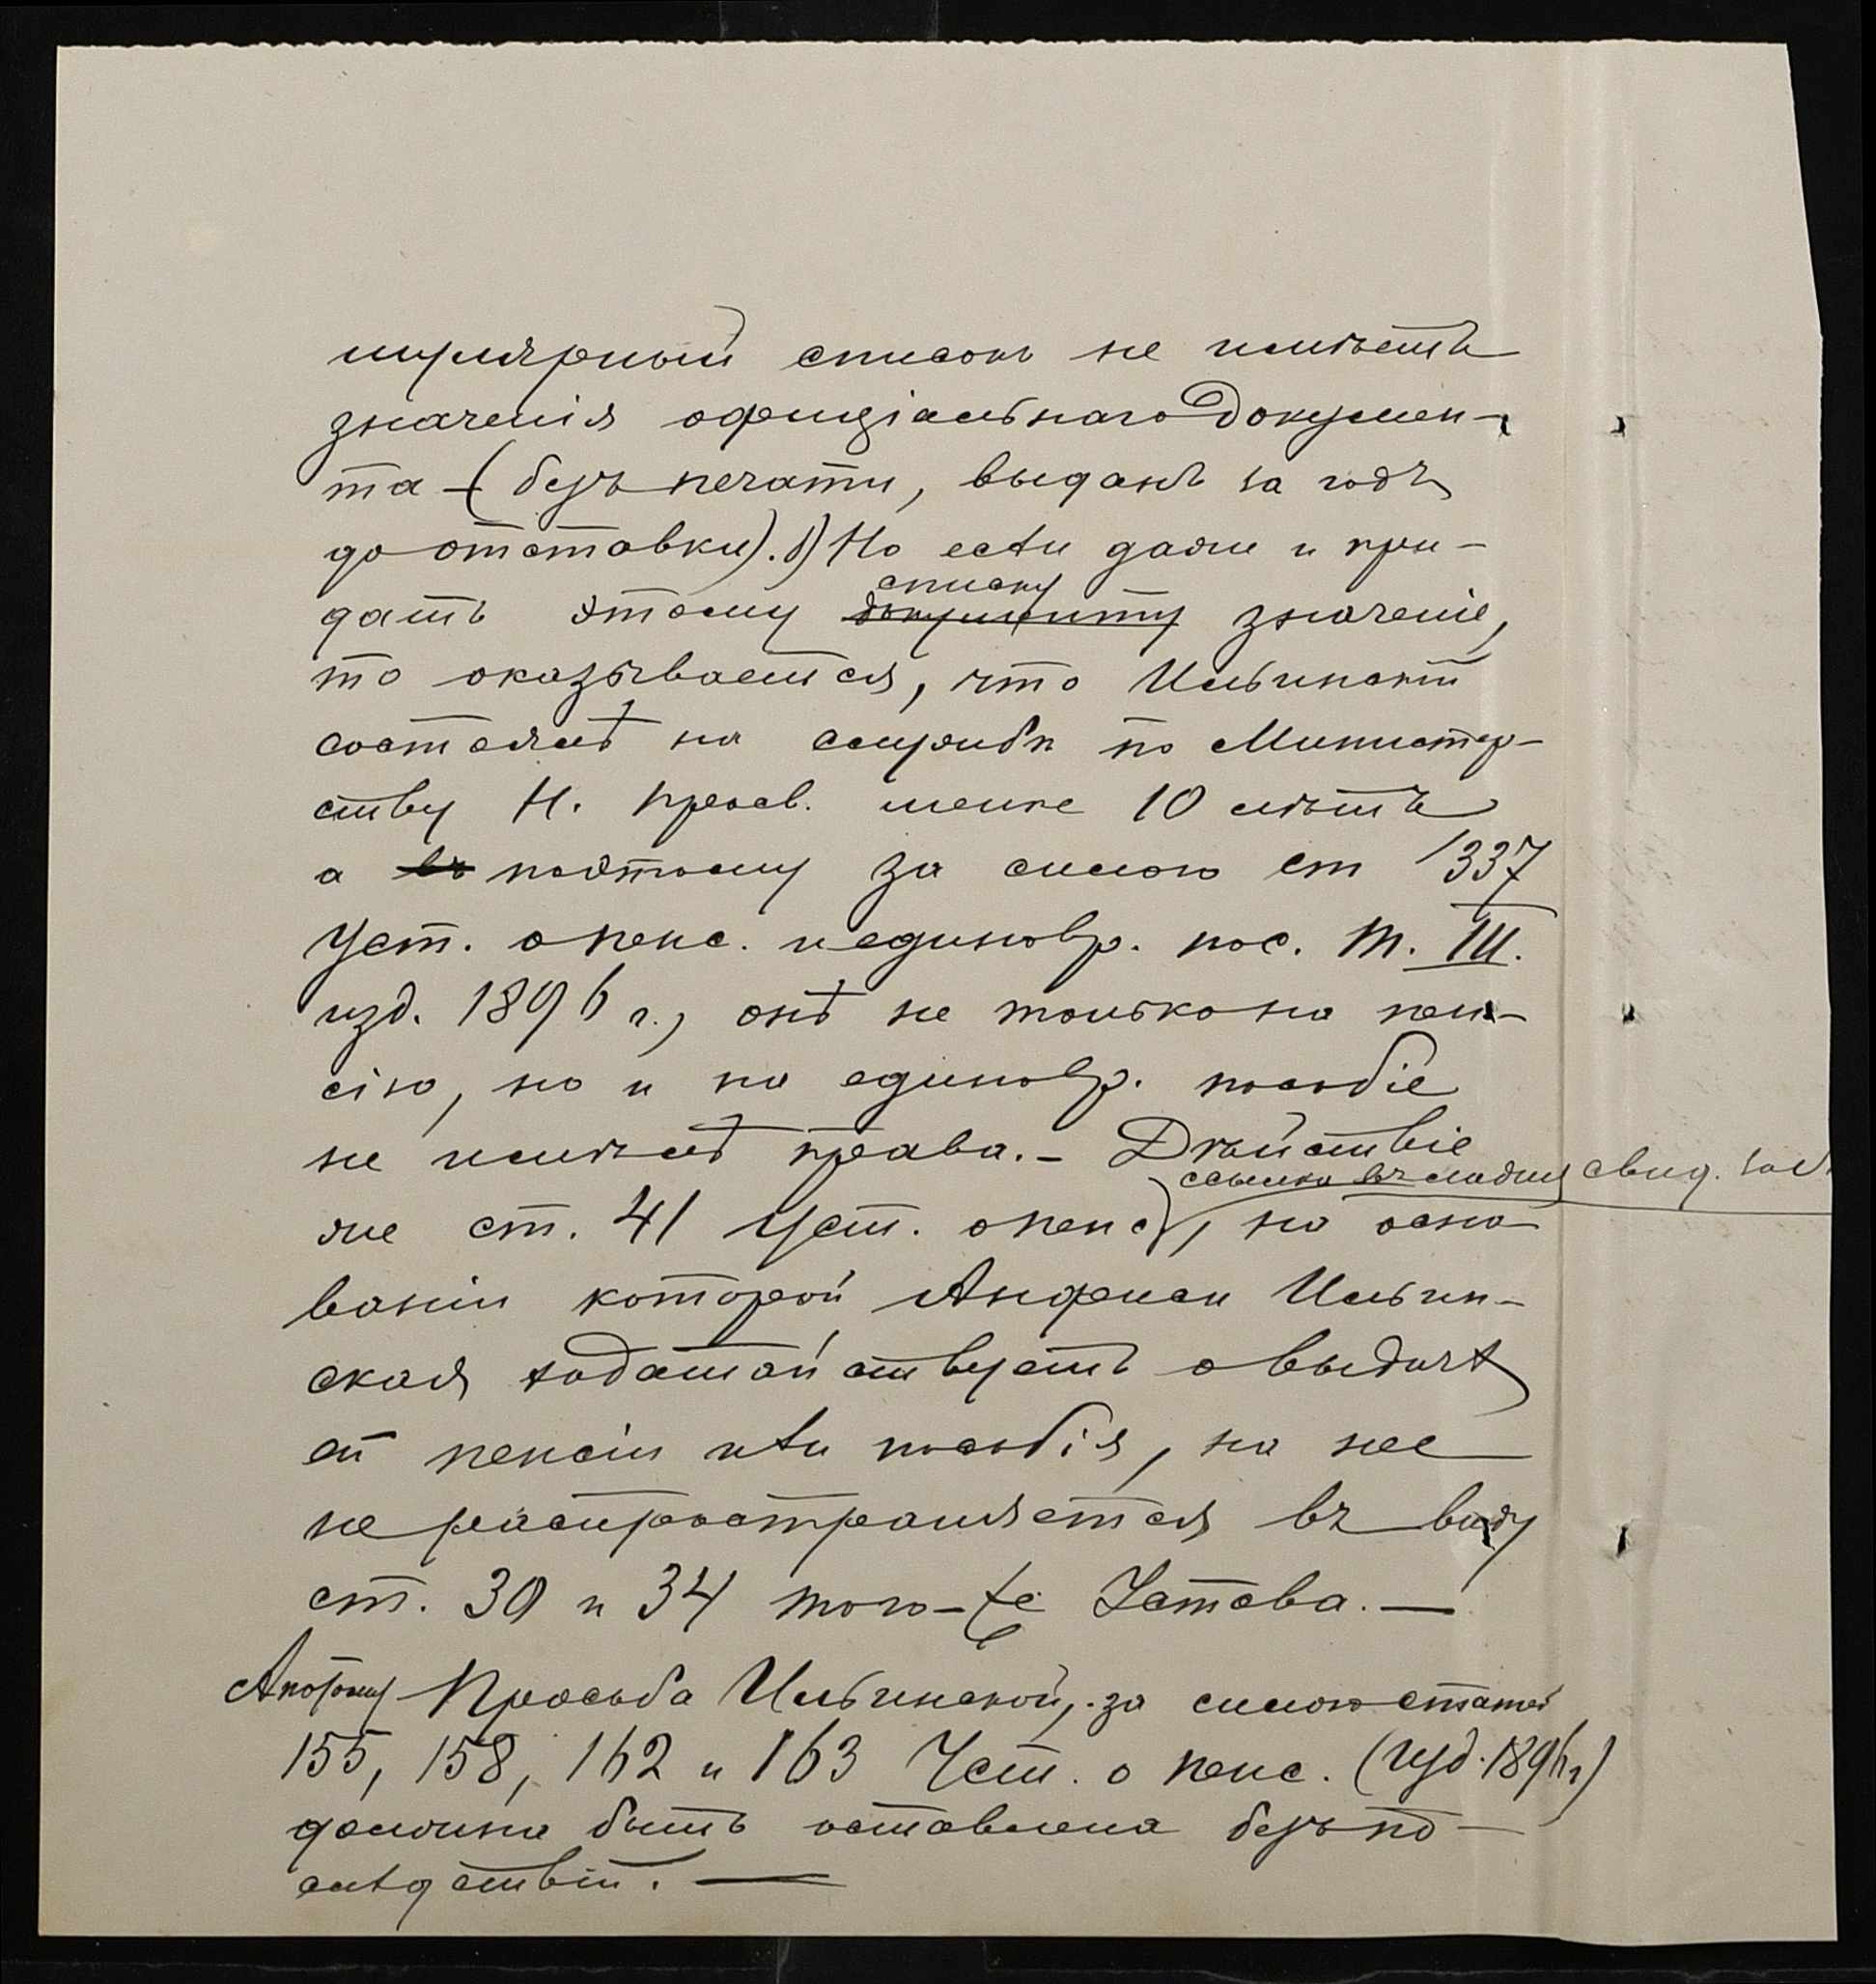 мулярный списокъ не имѣетъ
значенія офиціальнаго докумен-
та – (безъ печати, выданъ за годъ
до отставки). Но если даже и при-
списку
дать этому документу значеніе,
то оказывается, что Ильинскій
состоялъ на службѣ по Министер-
ству Н. Просв. менѣе 10 лѣтъ
а въ поэтому за силою ст 1337
Уст. о пенс. и единовр. пос. т. III.
изд. 1896 г., онъ не только на пен-
сію, но и на единовр. пособіе
не имѣлъ права. – Дѣйствіе
ссылка въ свид. бол.
же ст. 41 Уст. о пенс), на осно
ваніи которой Анфиса Ильин-
ская ходатайствуетъ о выдачѣ
ей пенсіи или пособія, на нее
не распространяется въ виду
ст. 30 и 34 того-же Устава. —
А потому Просьба Ильинской, за силою статей
155, 158, 162 и 163 Уст. о пенс. (изд. 1896 г)
должна быть оставлена безъ по-
слѣдствій. —